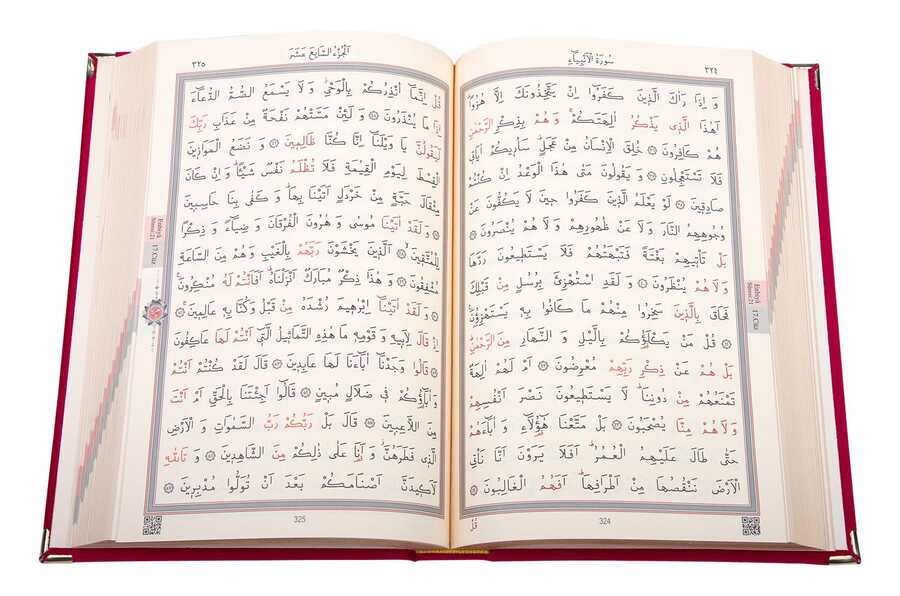 سُورَةُ الْاَنْبِيَاءِ
٣٢٤
وَ اِذَا رَاٰكَ الَّذِينَ كَفَرُٓوا اِنْ يَتَّخِذُونَكَ اِلَّا هُزُوًا
اَهٰذَا الَّذِي يَذْكُرُ اٰلِهَتَكُمْ وَ هُمْ بِذِكْرِ الرَّحْمٰنِ
هُمْ كَافِرُونَ ﴿٣٦﴾ خُلِقَ الْاِنْسَانُ مِنْ عَجَلٍ سَاُرِيكُمْ اٰيَاتِي
فَلَا تَسْتَعْجِلُونِ ﴿٣٧﴾ وَ يَقُولُونَ مَتٰى هٰذَا الْوَعْدُ اِنْ كُنْتُمْ
صَادِقِينَ ﴿٣٨﴾ لَوْ يَعْلَمُ الَّذِينَ كَفَرُوا حِينَ لَا يَكُفُّونَ عَنْ
وُجُوهِهِمُ النَّارَ وَ لَا عَنْ ظُهُورِهِمْ وَ لَا هُمْ يُنْصَرُونَ ﴿٣٩﴾
بَلْ تَأْتِيهِمْ بَغْتَةً فَتَبْهَتُهُمْ فَلَا يَسْتَطِيعُونَ رَدَّهَا
وَ لَا هُمْ يُنْظَرُونَ ﴿٤٠﴾ وَ لَقَدِ اسْتُهْزِئَ بِرُسُلٍ مِنْ قَبْلِكَ
فَحَاقَ بِالَّذِينَ سَخِرُوا مِنْهُمْ مَا كَانُوا بِهِ يَسْتَهْزِؤُنَ ﴿٤١﴾
قُلْ مَنْ يَكْلَؤُكُمْ بِالَّيْلِ وَ النَّهَارِ مِنَ الرَّحْمٰنِ
بَلْ هُمْ عَنْ ذِكْرِ رَبِّهِمْ مُعْرِضُونَ ﴿٤٢﴾ اَمْ لَهُمْ اٰلِهَةٌ
تَمْنَعُهُمْ مِنْ دُونِنَا لَا يَسْتَطِيعُونَ نَصْرَ اَنْفُسِهِمْ
وَ لَا هُمْ مِنَّا يُصْحَبُونَ ﴿٤٣﴾ بَلْ مَتَّعْنَا هٰٓؤُلَٓاءِ وَ اٰبَٓاءَهُمْ
حَتّٰى طَالَ عَلَيْهِمُ الْعُمُرُ اَفَلَا يَرَوْنَ اَنَّا نَأْتِي
الْاَرْضَ نَنْقُصُهَا مِنْ اَطْرَافِهَا اَفَهُمُ الْغَالِبُونَ ﴿٤٤﴾
قُلْ
324
Enbiyâ
Sûresi 21
17.Cüz
اَلْجُزْءُ السَّابِعَ عَشَرَ
٣٢٥
قُلْ اِنَّمَٓا اُنْذِرُكُمْ بِالْوَحْيِ وَ لَا يَسْمَعُ الصُّمُّ الدُّعَٓاءَ
اِذَا مَا يُنْذَرُونَ ﴿٤٥﴾ وَ لَئِنْ مَسَّتْهُمْ نَفْحَةٌ مِنْ عَذَابِ رَبِّكَ
لَيَقُولُنَّ يَا وَيْلَنَٓا اِنَّا كُنَّا ظَالِمِينَ ﴿٤٦﴾ وَ نَضَعُ الْمَوَازِينَ
الْقِسْطَ لِيَوْمِ الْقِيٰمَةِ فَلَا تُظْلَمُ نَفْسٌ شَيْئًا وَ اِنْ كَانَ
مِثْقَالَ حَبَّةٍ مِنْ خَرْدَلٍ اَتَيْنَا بِهَا وَ كَفٰى بِنَا حَاسِبِينَ
﴿٤٧﴾ وَ لَقَدْ اٰتَيْنَا مُوسٰى وَ هٰرُونَ الْفُرْقَانَ وَ ضِيَٓاءً وَ ذِكْرًا
لِلْمُتَّقِينَ ﴿٤٨﴾ اَلَّذِينَ يَخْشَوْنَ رَبَّهُمْ بِالْغَيْبِ وَ هُمْ مِنَ السَّاعَةِ
مُشْفِقُونَ ﴿٤٩﴾ وَ هٰذَا ذِكْرٌ مُبَارَكٌ اَنْزَلْنَاهُ اَفَاَنْتُمْ لَهُ مُنْكِرُونَ
﴿٥٠﴾ وَ لَقَدْ اٰتَيْنَٓا اِبْرٰهِيمَ رُشْدَهُ مِنْ قَبْلُ وَ كُنَّا بِهِ عَالِمِينَ ﴿٥١﴾
اِذْ قَالَ لِاَبِيهِ وَ قَوْمِهِ مَا هٰذِهِ التَّمَاثِيلُ الَّتِي اَنْتُمْ لَهَا عَاكِفُونَ
﴿٥٢﴾ قَالُوا وَجَدْنَٓا اٰبَٓاءَنَا لَهَا عَابِدِينَ ﴿٥٣﴾ قَالَ لَقَدْ كُنْتُمْ اَنْتُمْ
وَ اٰبَٓاؤُكُمْ فِي ضَلَالٍ مُبِينٍ ﴿٥٤﴾ قَالُٓوا اَجِئْتَنَا بِالْحَقِّ اَمْ اَنْتَ
مِنَ اللَّاعِبِينَ ﴿٥٥﴾ قَالَ بَلْ رَبُّكُمْ رَبُّ السَّمٰوَاتِ وَ الْاَرْضِ
الَّذِي فَطَرَهُنَّ وَ اَنَا عَلٰى ذٰلِكُمْ مِنَ الشَّاهِدِينَ ﴿٥٦﴾ وَ تَاللّٰهِ
لَاَكِيدَنَّ اَصْنَامَكُمْ بَعْدَ اَنْ تُوَلُّوا مُدْبِرِينَ ﴿٥٧﴾
325
Enbiyâ
Sûresi 21
17.Cüz